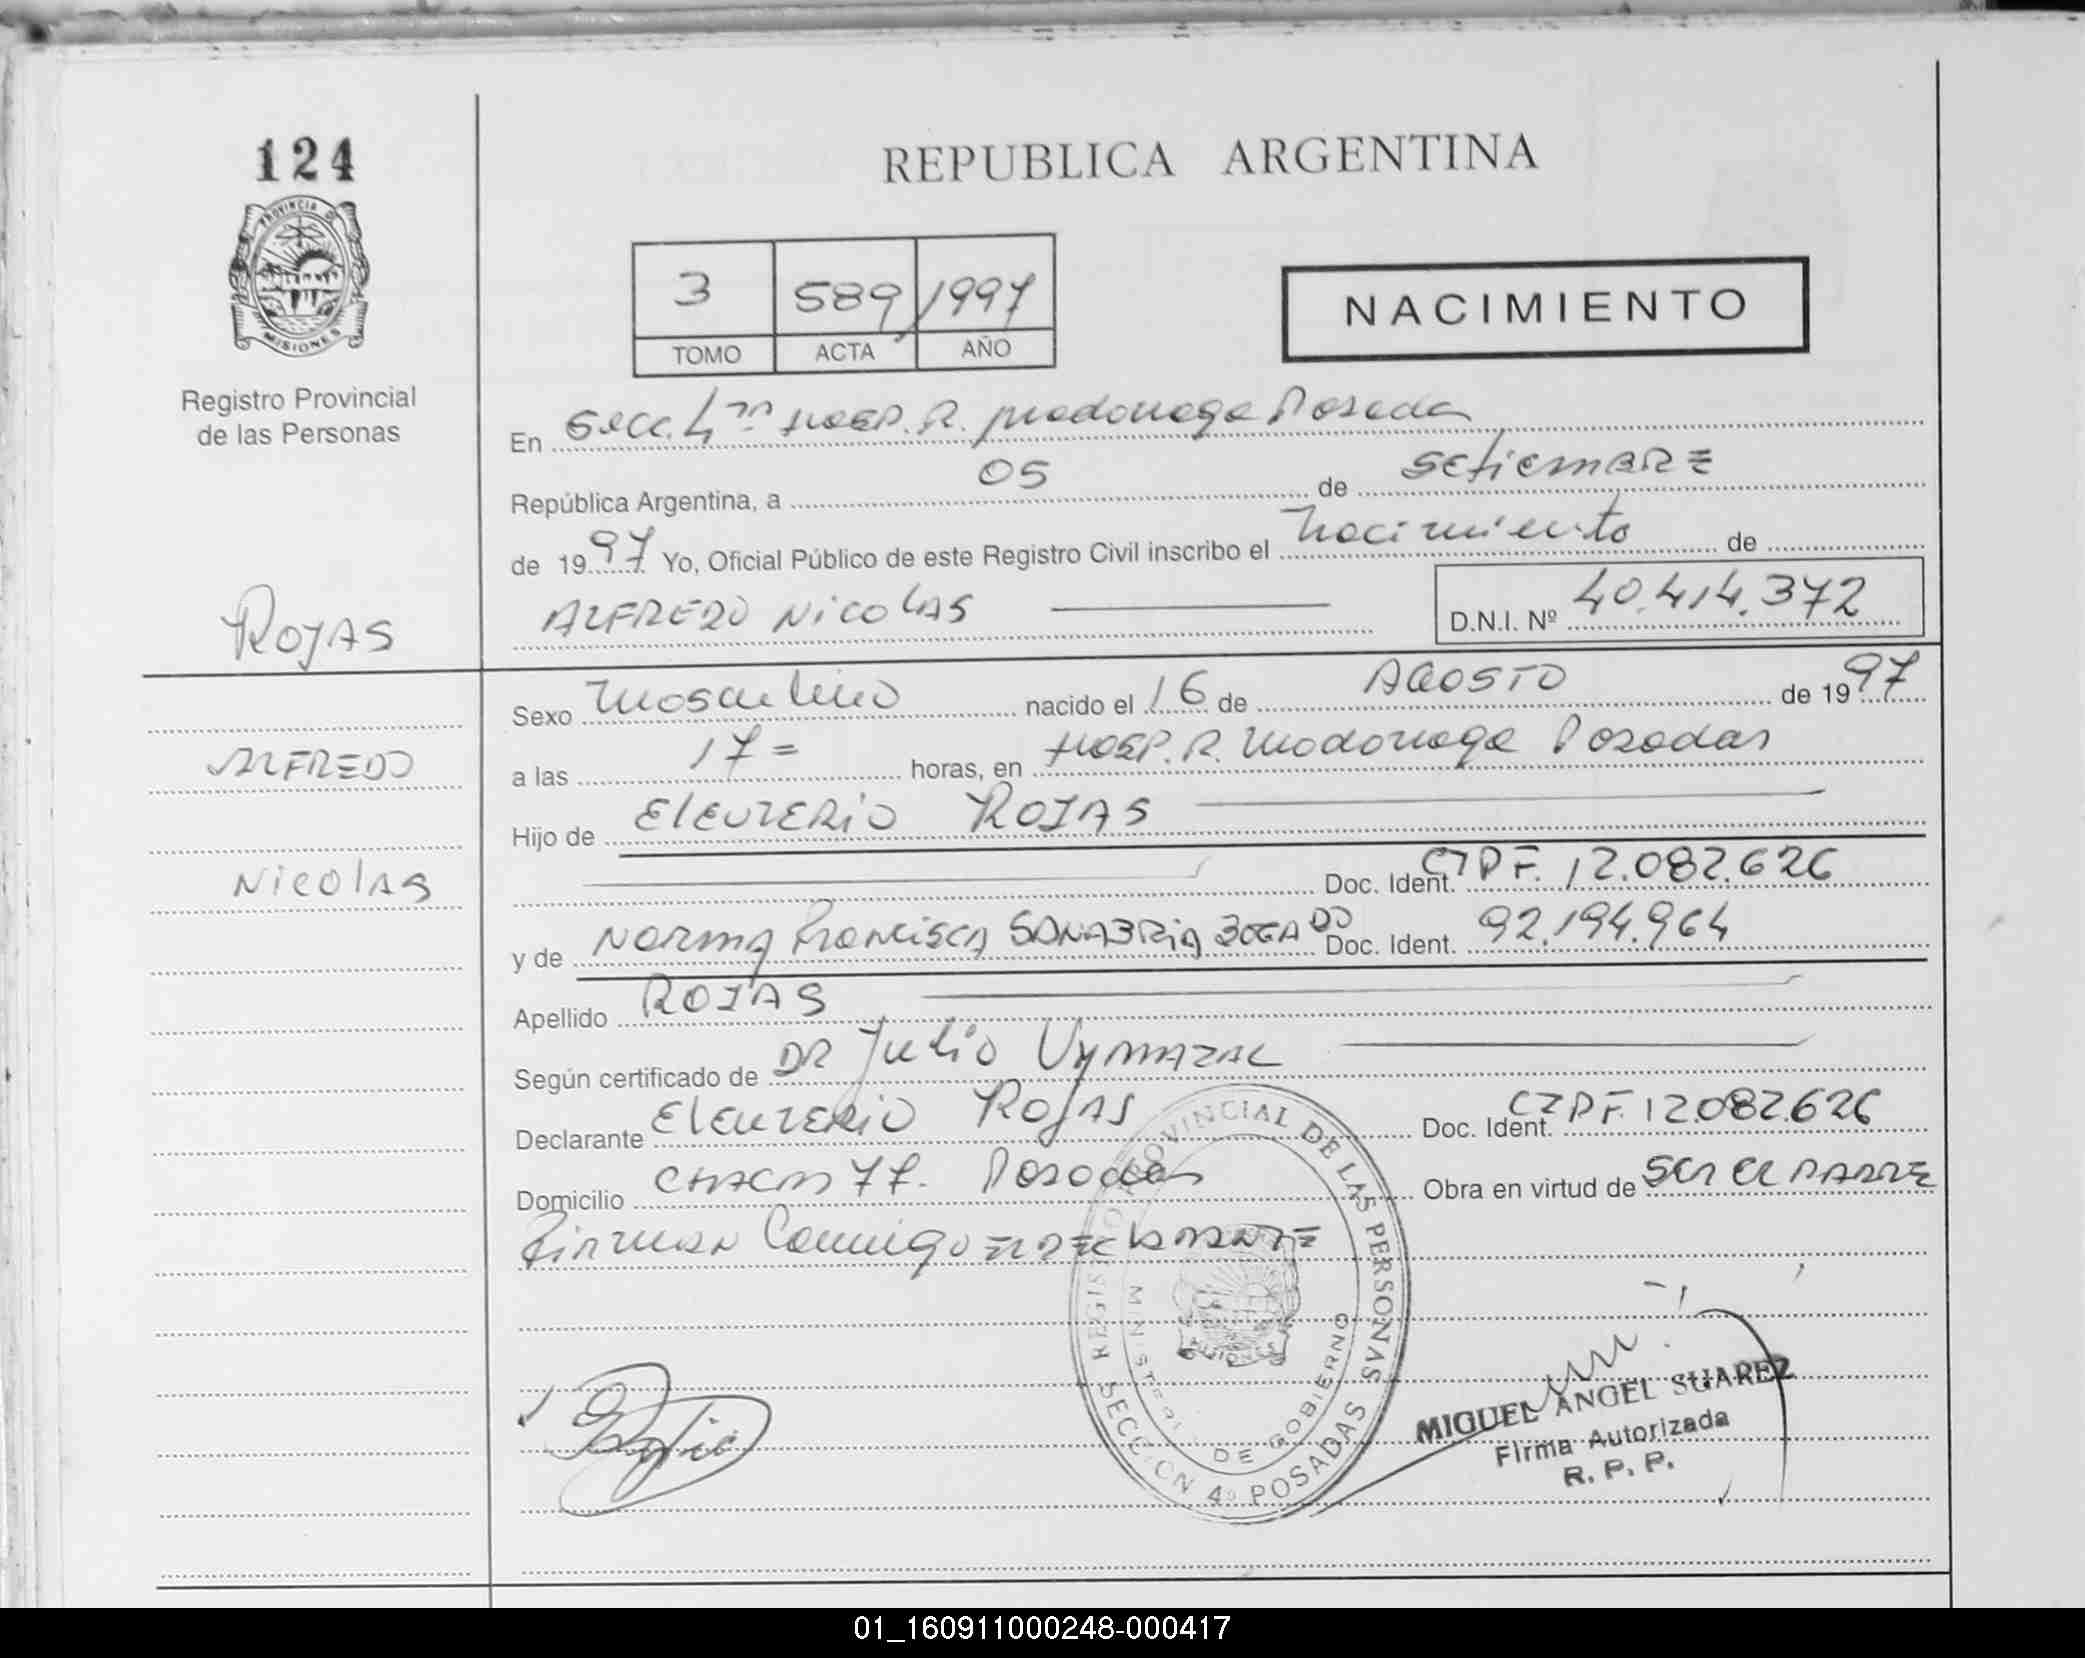 124
PROVINCIA D
MISIONES
Registro Provincial
de las Personas
ROJAS
ALFREDO
NICOLAS
REPUBLICA ARGENTINA
3 589 1997
TOMO ACTA AÑO
NACIMIENTO
En Secc. 4ta HOSP. R. Madonaga Posada
República Argentina, a 05 de SETIEMBRE
de 1997 Yo, Oficial Público de este Registro Civil inscribo el nacimiento de
ALFREDO NICOLAS
D.N.I. Nº 40.414.372
Sexo masculino nacido el 16 de AGOSTO de 1997
a las 17= horas, en HOSP. R. Madonaga Posadas
Hijo de ELEUTERIO ROJAS
Doc. Ident. CIPF. 12.082.626
y de NORMA FRANCISCA SANABRIA BOGADO Doc. Ident. 92.194.964
Apellido ROJAS
Según certificado de DR Julio Vymazal
Declarante ELEUTERIO ROJAS Doc. Ident. CIPF. 12.082.626
Domicilio CHACRA 77. Posadas Obra en virtud de SER EL PADRE
Firman Conmigo EL DECLARANTE
REGISTRO PROVINCIAL DE LAS PERSONAS
MINISTERI DE GOBIERNO
MISIONES
SECCION 4º POSADAS
MIGUEL ANGEL SUAREZ
Firma Autorizada
R. P. P.
01_160911000248-000417